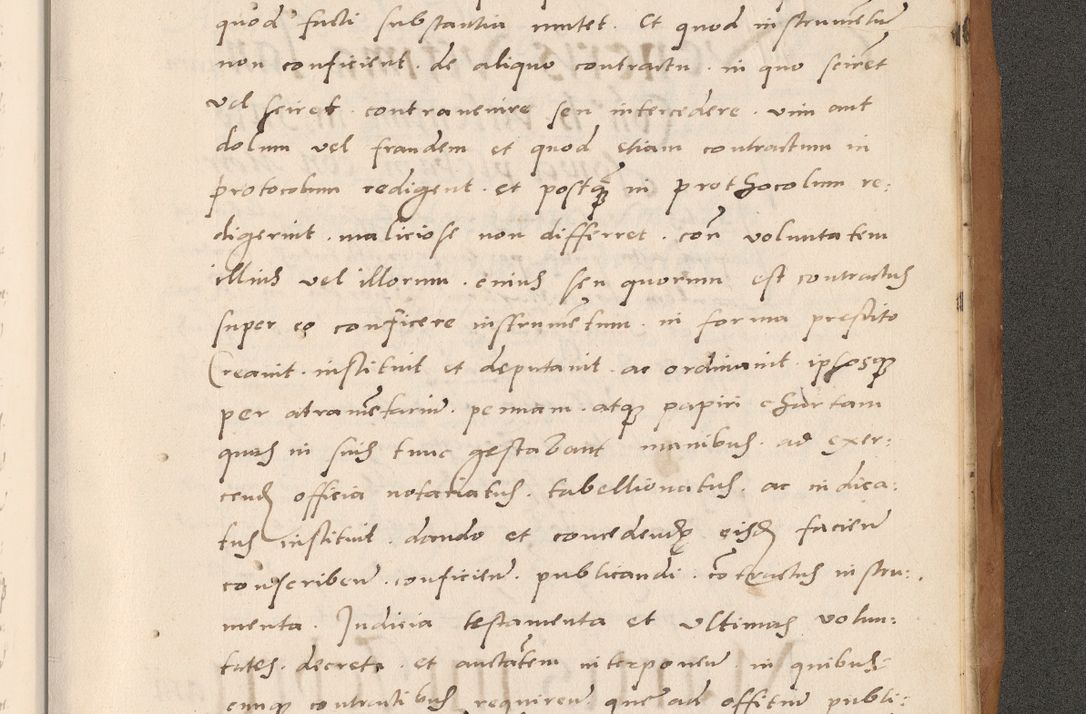 quod facti substantia mutet . Et quod instrumētū
non conficient . de aliquo contractu . in quo scirēt
vel sciret . contravenire seu intercedere . vim aut
dolum vel fraudem et quod etiam contractum in
protocolum redigent . et postq̄ in prothocolum re:
digerint . maliciose non differret . con̄ voluntatem
illius vel illorum . cuius seu quorum est contractus
super eo conficere instrumentum . in forma prestito
Creavit . instituit et deputavit . ac ordinavit . ipsosq̨
per atramētariū . pennam . atq̨ papiri chartam
quas in suis tunc gestabant manibus . ad exer:
cend̨ officia notariatus . tabellionatus . ac iudica:
tus instituit . dando et concedend̨ eisd̨ faciend̄
conscribend̄ . conficiend̄ . publicandi . cōtractus instru:
menta . Judicia testamenta et ultimas volun:
tates . decreta . et auctātem interponend̄ . in quibus:
cumq̨ contractibus requirend̄ que ad offitiū publi: